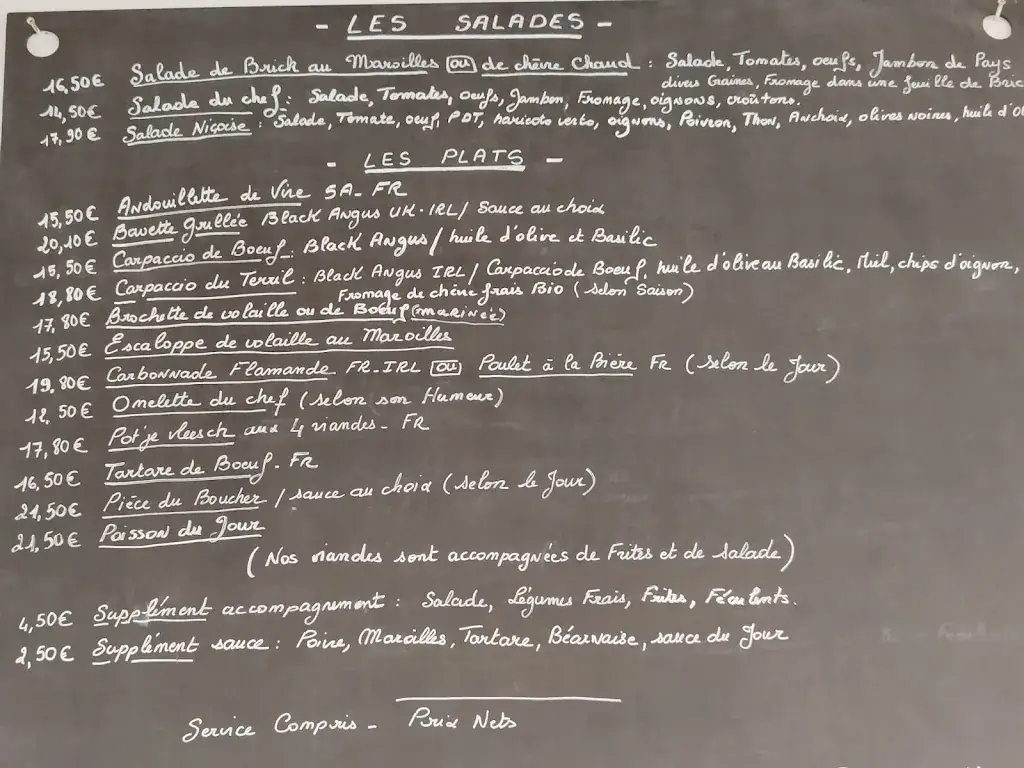 - LES SALADES -
16,50€ Salade de Brick au Maroilles ou de chèvre Chaud : Salade, Tomates, oeufs, Jambon de Pays
divers Graines, Fromage dans une feuille de Bric
14,50€ Salade du chef : Salade, Tomates, oeufs, Jambon, Fromage, oignons, croûtons.
17,90€ Salade Niçoise : Salade, Tomate, oeuf, PDT, haricots verts, oignons, Poivron, Thon, Anchois, olives noires, huile d'ol
- LES PLATS -
15,50€ Andouillette de Vire 5A - FR
20,10€ Bavette grillée Black Angus UK - IRL / Sauce au choix
15,50€ Carpaccio de Boeuf : Black Angus / huile d'olive et Basilic
18,80€ Carpaccio du Terril : Black Angus IRL / Carpaccio de Boeuf, huile d'olive au Basilic, Miel, chips d'oignon,
Fromage de chèvre frais Bio (selon Saison)
17,80€ Brochette de volaille ou de Boeuf (marinée)
15,50€ Escaloppe de volaille au Maroilles
19,80€ Carbonnade Flamande FR-IRL ou Poulet à la Bière FR (selon le Jour)
12,50€ Omelette du chef (selon son Humeur)
17,80€ Pot'je vleesch aux 4 viandes - FR
16,50€ Tartare de Boeuf - FR
21,50€ Pièce du Boucher / sauce au choix (selon le Jour)
21,50€ Poisson du Jour
(Nos viandes sont accompagnées de Frites et de salade)
4,50€ Supplément accompagnement : Salade, Légumes Frais, Frites, Féculents.
2,50€ Supplément sauce : Poivre, Maroilles, Tartare, Béarnaise, sauce du Jour
Service Compris - Prix Nets